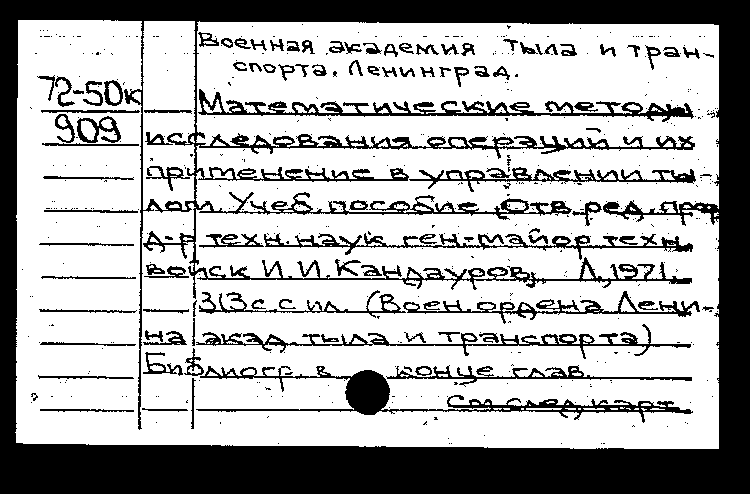 Военная академия тыла и тран-
спорта. Ленинград.
72-50к
909
Математические методы
исследования операций и их
применение в управлении ты-
лом. Учеб. пособие. Отв. ред. проф.
д-р техн. наук ген-майор техн.
войск И.И. Кандауров. Л., 1971.
313 с. с ил. (Воен. ордена Лени-
на акад. тыла и транспорта)
Библиогр. в конце глав.
См. след. карт.